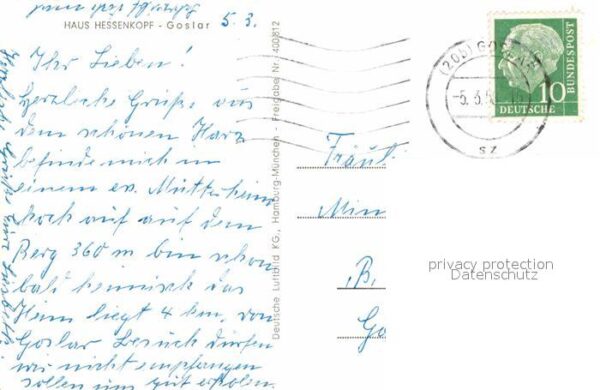 HAUS HESSENKOPF - Goslar
5.3.
Ihr Lieben!
Herzliche Grüße aus
dem schönen Harz
befinde mich in
einem ev. Mütterheim
hoch auf auf dem
Berg 360 m bin schon
bald heimisch das
Heim liegt 4 km, von
Goslar Besuch dürfen
wir nicht empfangen
sollen uns gut erholen.
Deutsche Luftbild KG., Hamburg-München - Freigabe Nr. 400812
(20b) GOSLAR
-5.3.5
sz
10
DEUTSCHE
BUNDESPOST
Fräul.
Min
B.
Go
privacy protection
Datenschutz